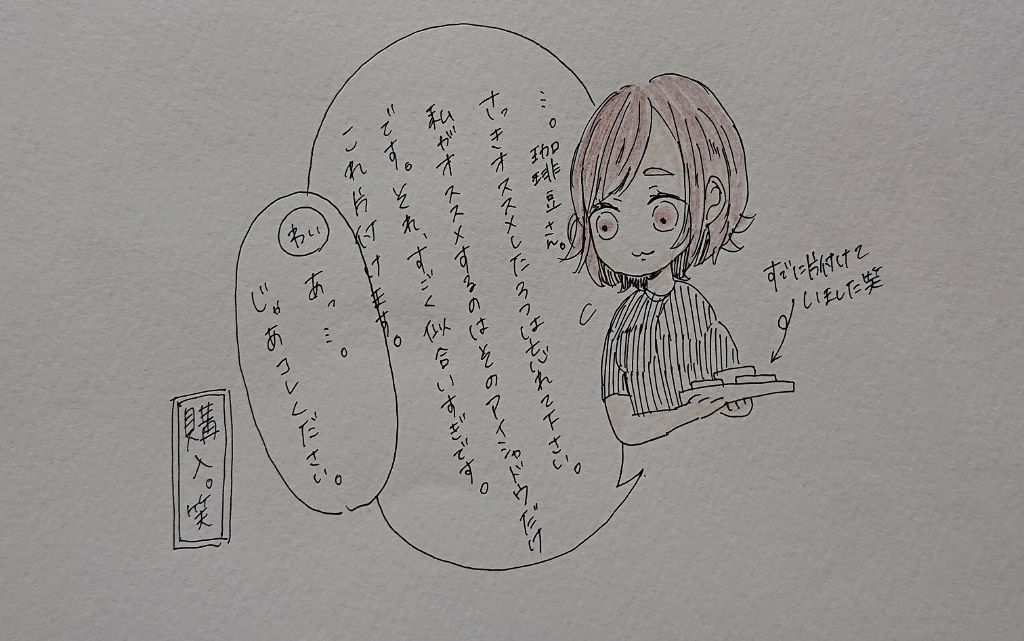 …。珈琲豆さん。
さっきオススメした3つは忘れて下さい。
私がオススメするのはそのアイシャドウだけ
です。それ、すごく似合いすぎです。
これ片付けます。
わい
あっ…。
じゃあコレください。
すでに片付けて
いました笑
購入。笑